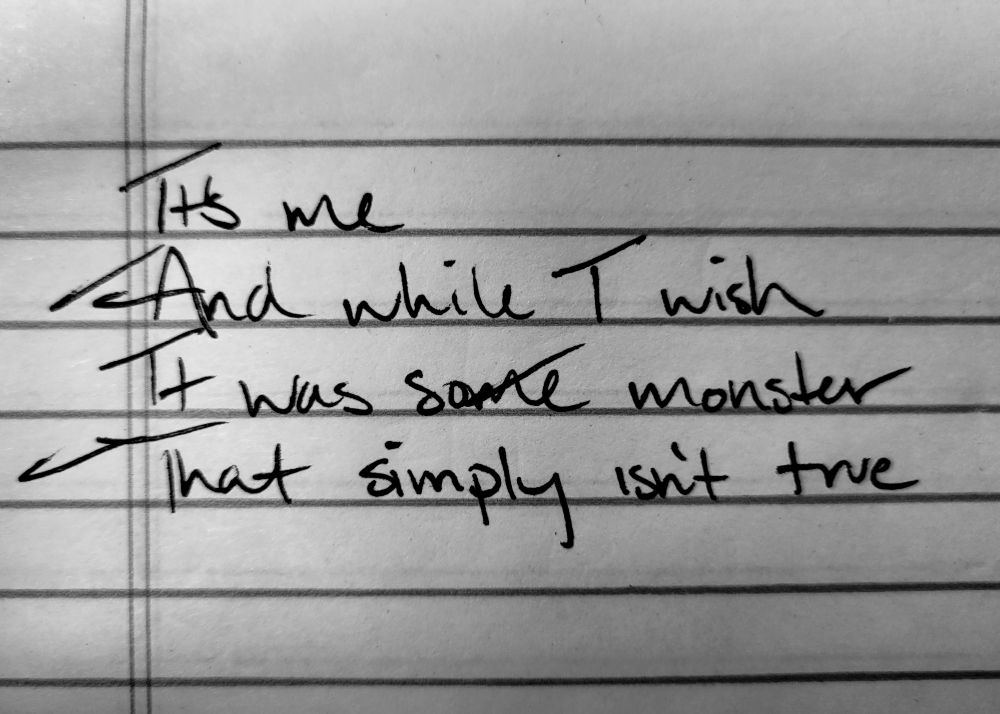 It's me
And while I wish
It was some monster
That simply isn't true